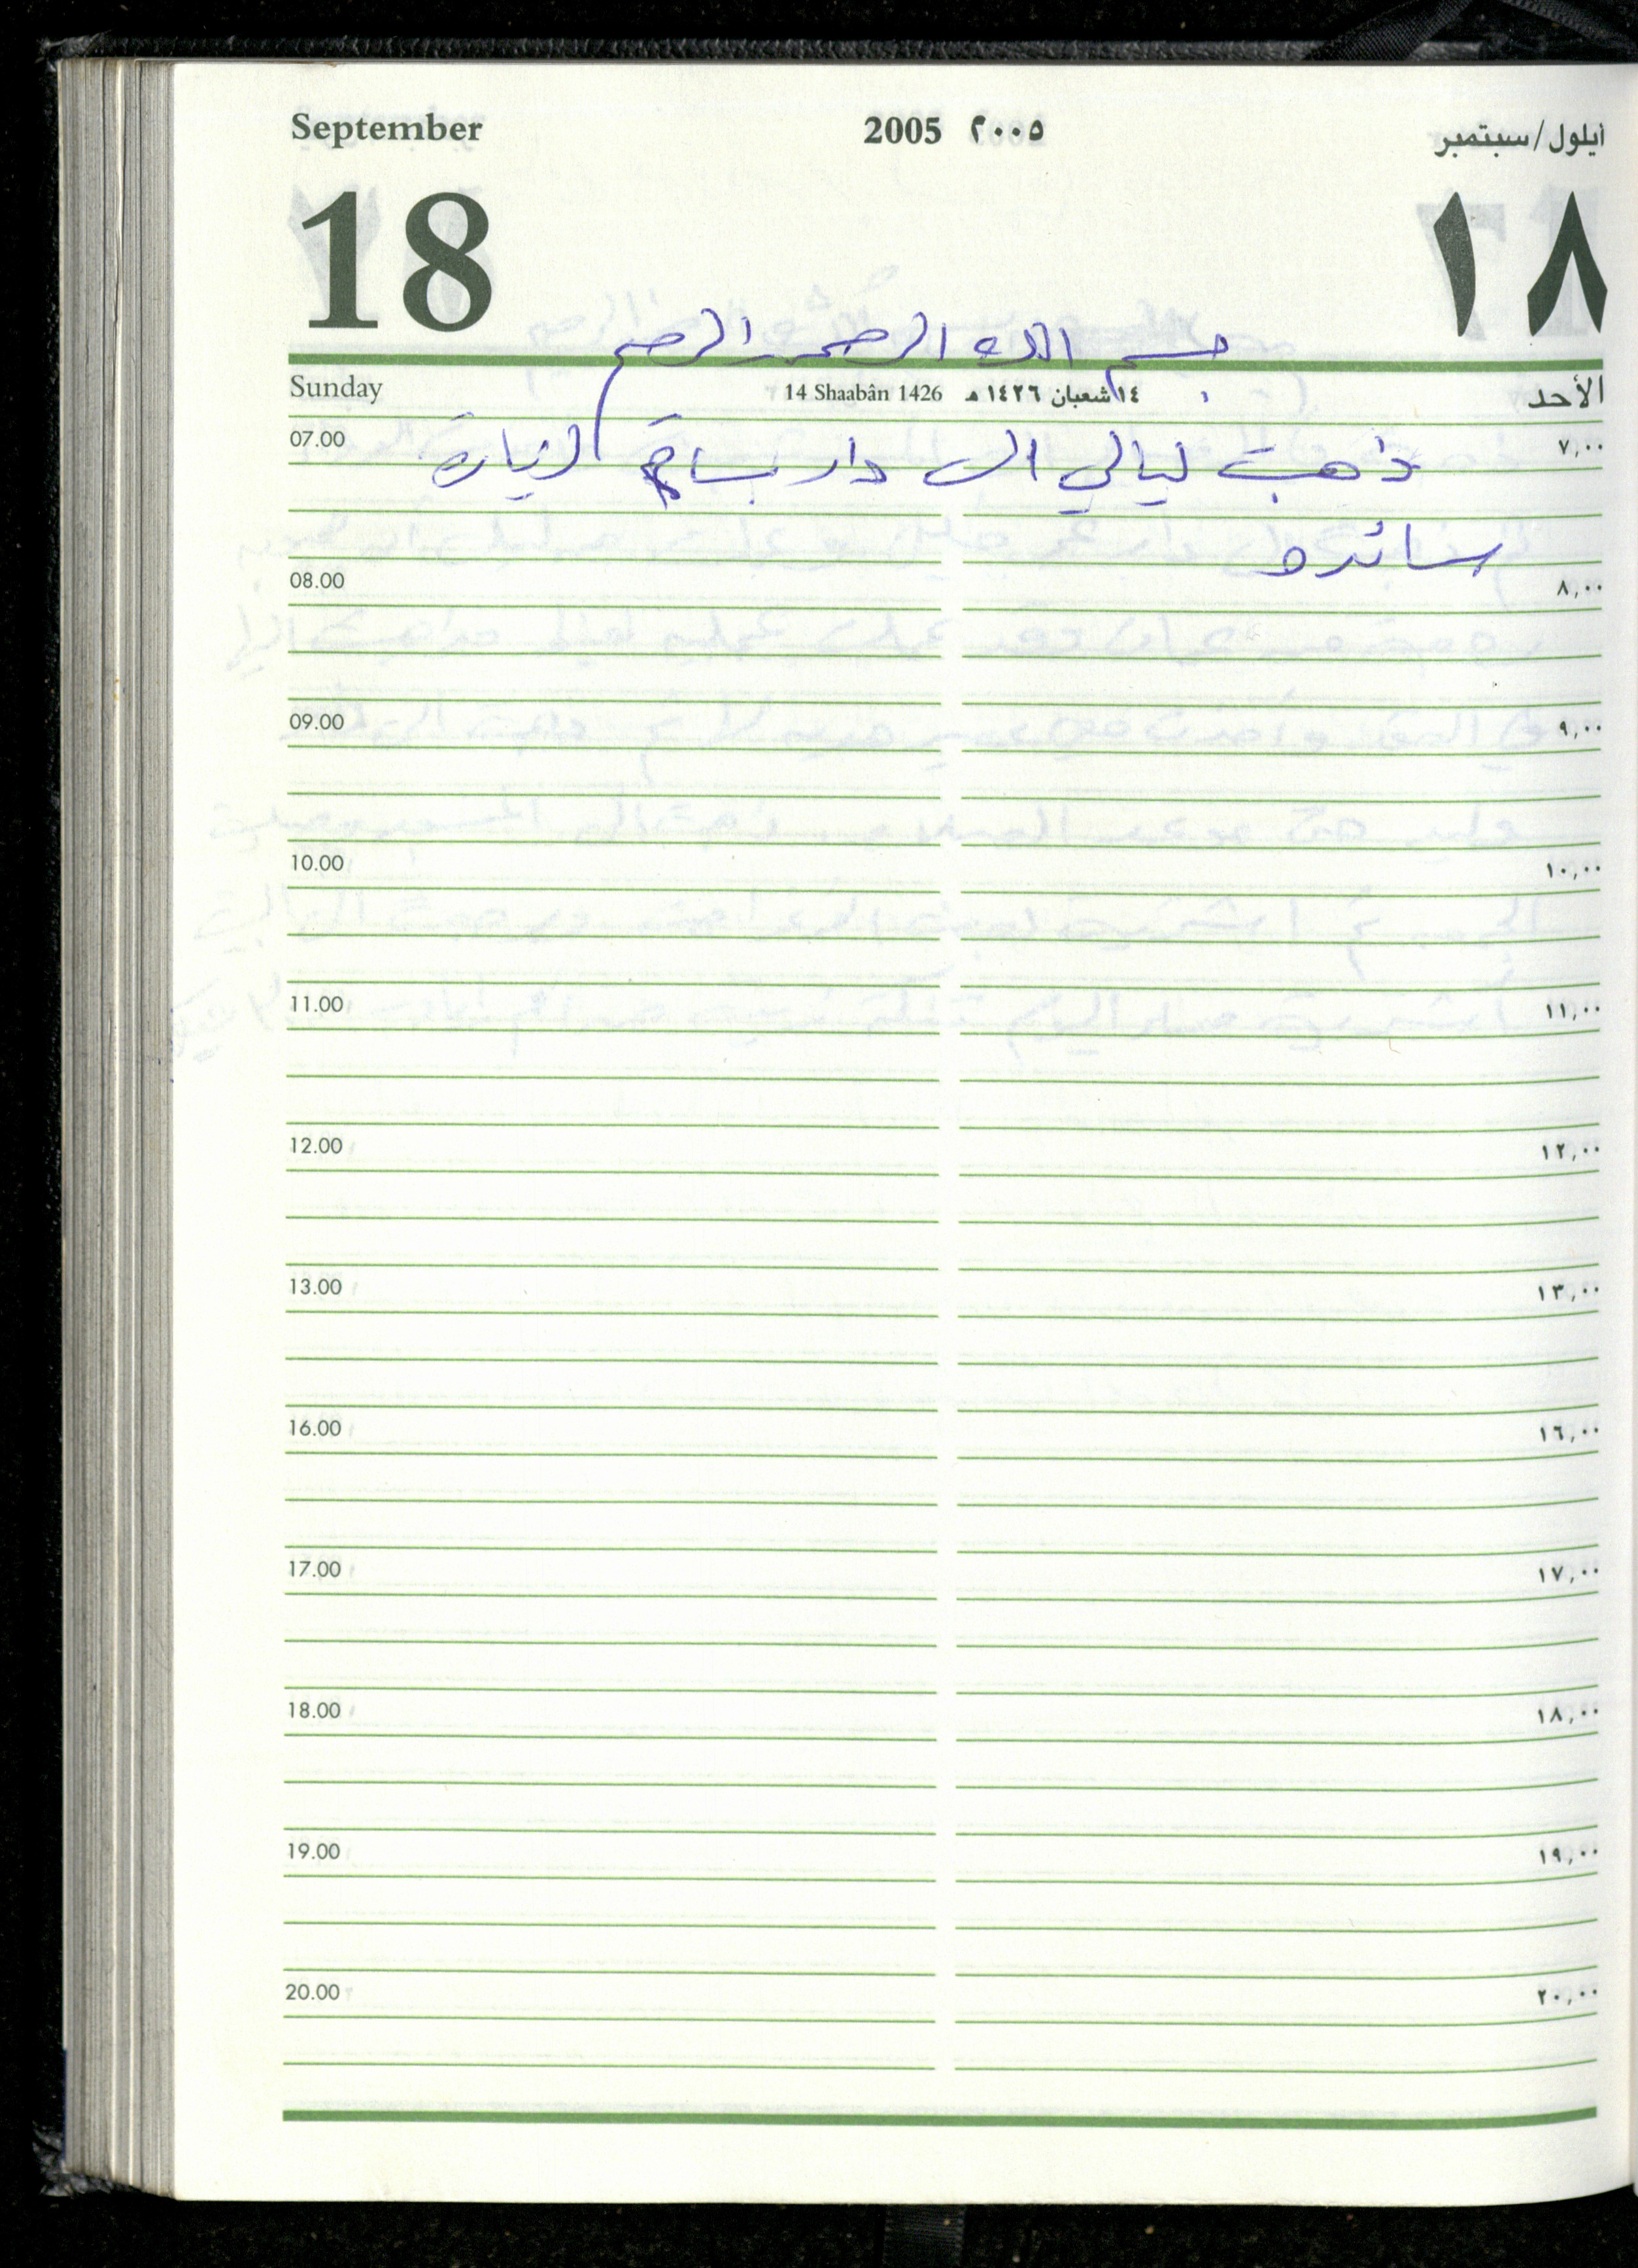 September 2005 ٢٠٠٥ أيلول/سبتمبر
18 ١٨
بسم الله الرحمن الرحيم
Sunday 14 Shaabân 1426 ١٤ شعبان ١٤٢٦ هـ الأحد
07.00 ٧,٠٠
ذاهب ليالي الى دار بسام لزيارة
سائده
08.00 ٨,٠٠
09.00 ٩,٠٠
10.00 ١٠,٠٠
11.00 ١١,٠٠
12.00 ١٢,٠٠
13.00 ١٣,٠٠
16.00 ١٦,٠٠
17.00 ١٧,٠٠
18.00 ١٨,٠٠
19.00 ١٩,٠٠
20.00 ٢٠,٠٠